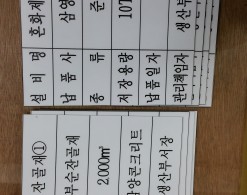 혼화제
삼영
준
107
생산부
설비명
납품사
종류
저장용량
납품일자
관리책임자
잔골재①
부순잔골재
2,000㎥
양콘크리트
생산부서장